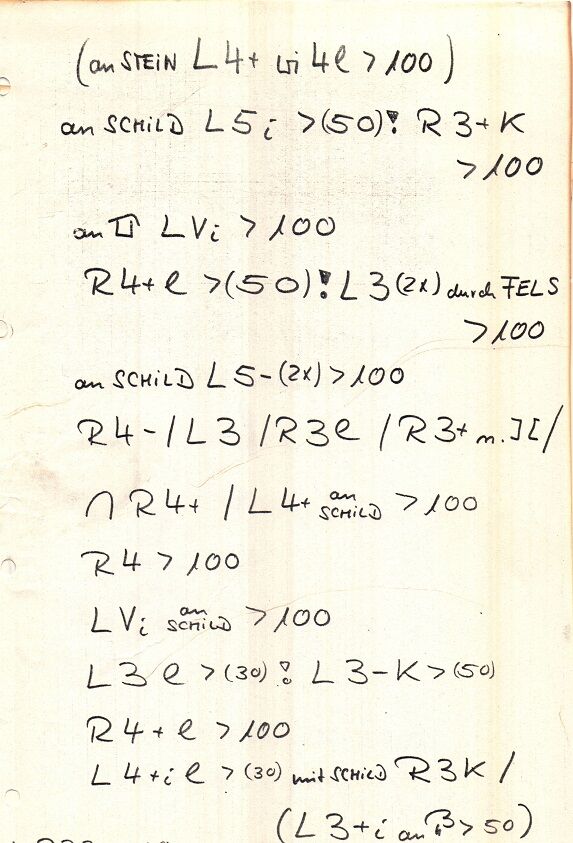 (an STEIN L4+ wi 4l >100)
an SCHILD L5i >(50)! R3+K
>100
an LVi >100
R4+l >(50)! L3(2x) durch FELS
>100
an SCHILD L5-(2x) >100
R4-/L3/R3l/R3+ n. ][/
∩ R4+ / L4+ an SCHILD >100
R4 >100
LVi an SCHILD >100
L3l >(30)! L3-K >(50)
R4+l >100
L4+il >(30) mit SCHILD R3K/
(L3+i an >50)